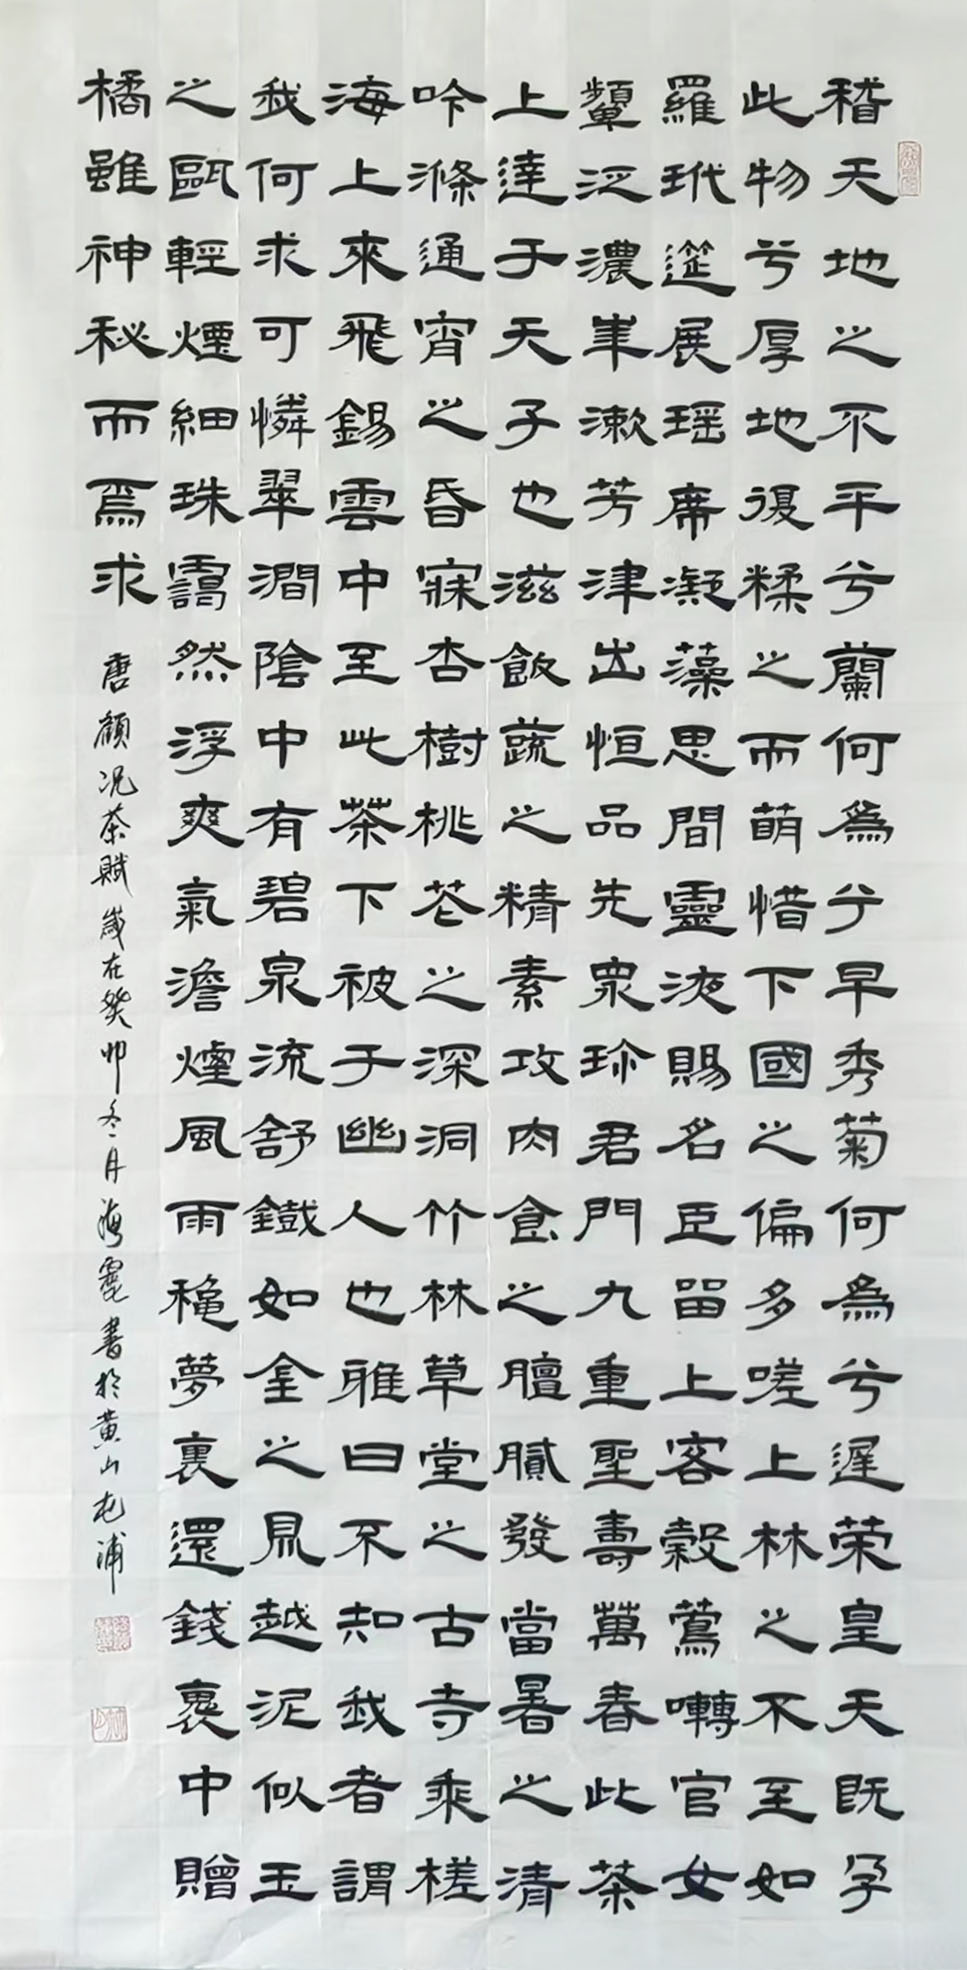 稽天地之不平兮蘭何為兮早秀菊何為兮遲荣皇天既孕
此物兮厚地復糅之而萌惜下國之偏多嗟上林之不至如
羅玳筵展瑶席凝藻思間靈液賜名臣留上客穀鶯囀官女
顰泛濃華漱芳津出恒品先眾珍君門九重聖壽萬春此茶
上達于天子也滋飯蔬之精素攻肉食之膻膩發當暑之清
吟滌通宵之昏寐杏樹桃花之深洞竹林草堂之古寺乘槎
海上來飛錫雲中至此茶下被于幽人也雅曰不知我者謂
我何求可憐翠澗陰中有碧泉流舒鐵如金之鼎越泥似玉
之甌輕煙細珠靄然浮爽氣澹煙風雨穐夢裏還錢褱中贈
橘雖神秘而焉求
唐顧况茶賦歲在癸卯冬月海霞書於黄山屯浦